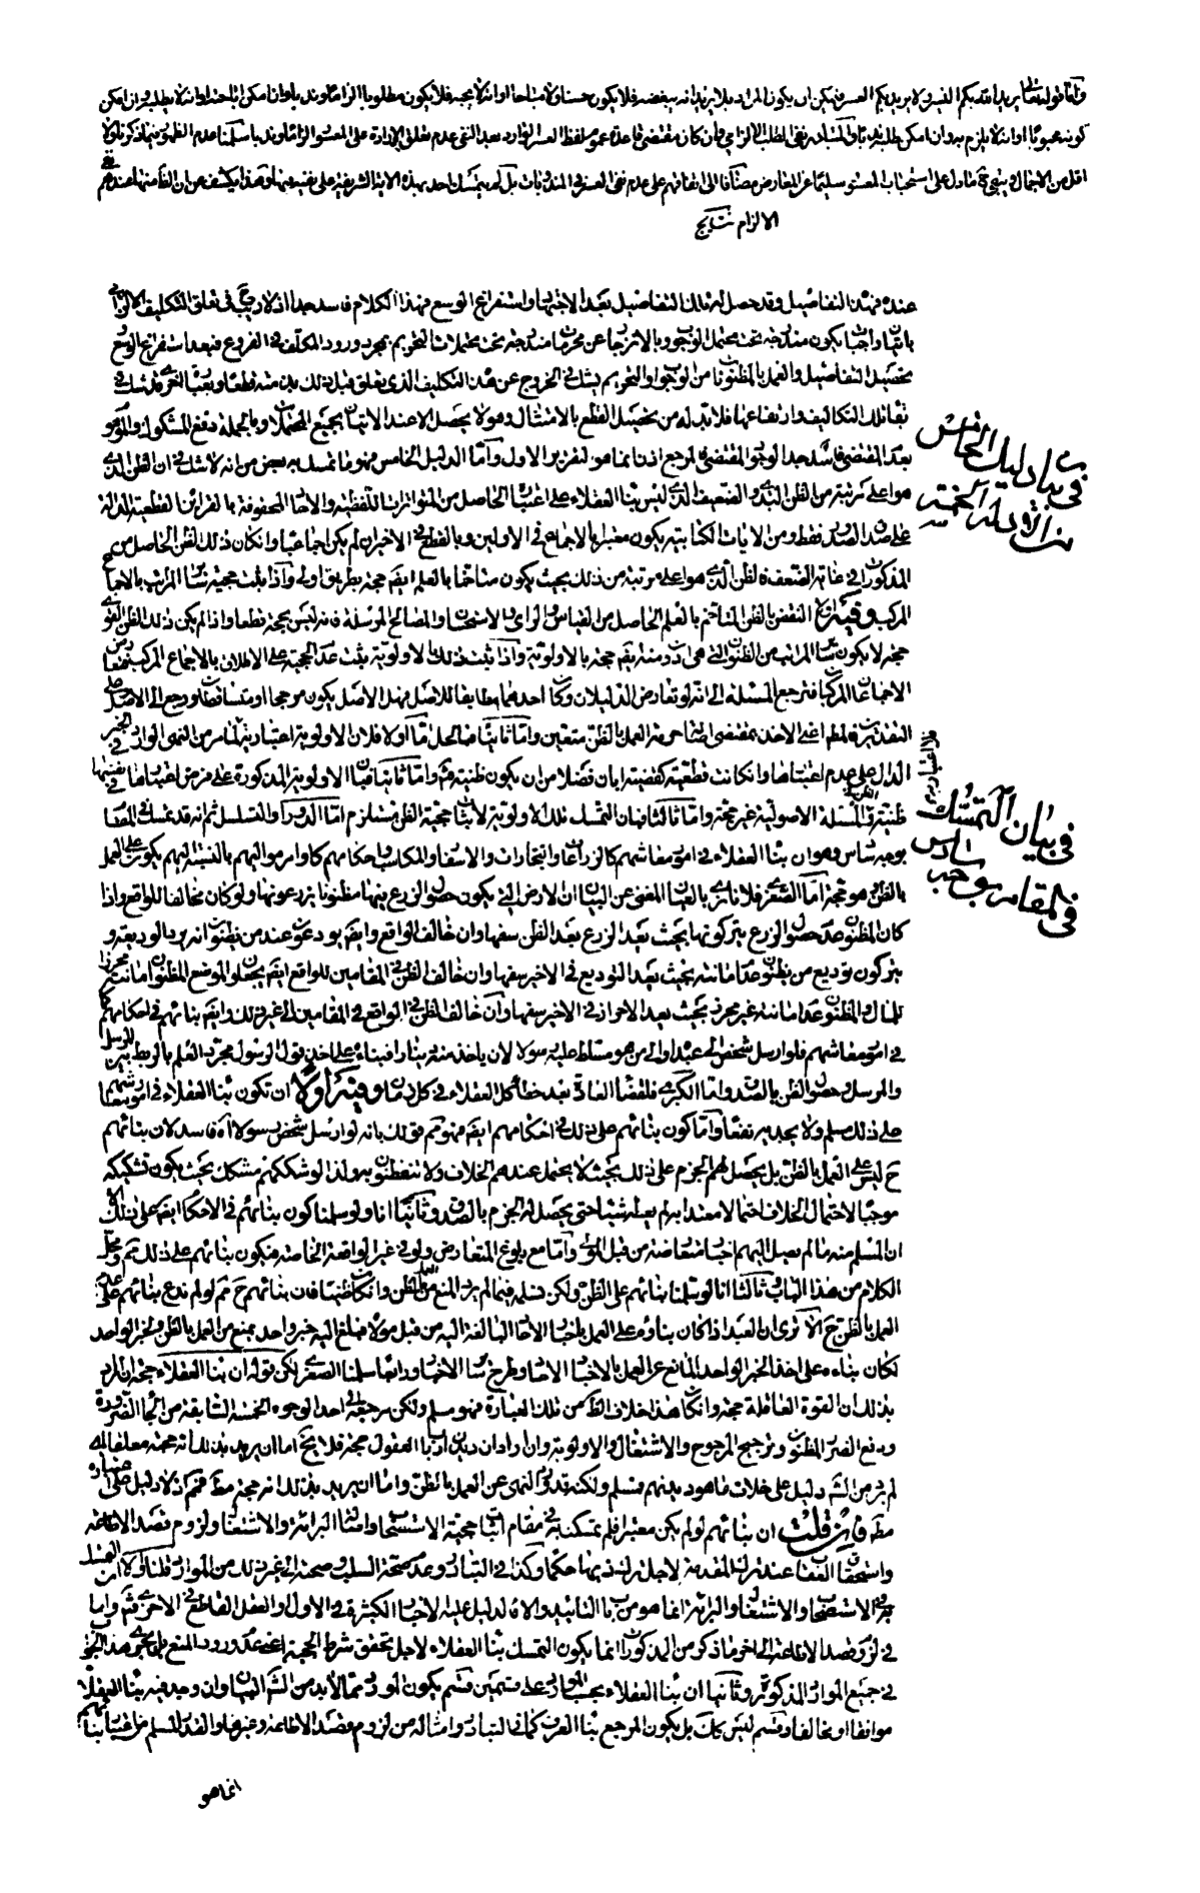 واما قوله تعالى يريد الله بكم اليسر ولا يريد بكم العسر فيمكن ان يكون المراد بلا يريد انه يبغضه فلا يكون حسنا ولا مباحا او انه لا يحبه فلا يكون مطلوبا الزاما او ندبا وان امكن اباحته او انه لا يطلبه وان امكن
كونه محبوبا او انه لا يلزم به وان امكن طلبه ندبا والمتبادر نفى الطلب الالزامي وان كان مقتضى قاعدة عموم لفظ العسر الوارد بعد النفى عدم تعلق الارادة على المعسور الزاما وندبا سلمنا عدم الظهور فيما ذكرنا ولا
اقل من الاجمال ويبقى ح ما دل على استحباب المعسور سليما عن المعارض مضافا الى اتفاقهم على عدم نفى العسر في المندوبات بل لم يتمسك احد بهذه الاية الشريفة على نفيه فيها وهذا يكشف عن ان الظ منها عندهم نفى
الالزام نتايج
عنده فهذه التفاصيل وقد حصل له تلك التفاصيل بعد الاجتهاد واستفراغ الوسع فهذا الكلام فاسد جدا اذ لا ريب في تعلق التكليف الالزامي
باتيان واجبات يكون مندرجة تحت محتمل الوجوب وبالانزجار عن محرمات مندرجة تحت محتملات التحريم بمجرد ورود المكلف في الفروع فبعد استفراغ الوسع و
تحصيل التفاصيل والعمل بالمظنونات من الوجوب او التحريم يشك في الخروج عن هذه التكليف الذى تعلق قبل ذلك بذمته قطعا وبعبارة اخرى شك في
بقاء تلك التكاليف وارتفاعها فلا بد له من تحصيل القطع بالامتثال وهو لا يحصل الا عند الاتيان بجميع المحتملات وبالجملة دفع المشكوك والموهوم
بعد المقتضى فاسد جدا لوجود المقتضى فالمرجع اذن انما هو التقرير الاول واما الدليل الخامس فهو ما تمسك به بعض من انه لا شك في ان الظن الذى
هو اعلى مرتبة من الظن البدوي والضعيف الذى ليس بناء العقلاء على اعتباره الحاصل من المتواترات اللفظية والاحاد المحفوفة بالقرائن القطعية الدالة
على صدق الصدور فقط ومن الايات الكتابية يكون معتبرا بالاجماع في الاولين وبالقطع في الاخير ان لم يكن اجماعيا وان كان ذلك الظن الحاصل من
المذكورات في غاية الضعف فالظن الذى هو اعلى مرتبة من ذلك بحيث يكون متاخما بالعلم ايضا حجة بطريق اولى واذا ثبت حجيته ثبت ساير المراتب بالاجماع
المركب وفيه اولا النقض بالظن المتاخم بالعلم الحاصل من القياس والراى والاستحسان والمصالح المرسلة فانه ليس بحجة قطعا واذا لم يكن ذلك الظن القوى
حجة لا يكون ساير المراتب من الظنون التى هى ادون منه بقسم حجة بالاولوية واذا ثبت ذلك بالاولوية يثبت عدم الحجية على الاطلاق بالاجماع المركب
الاجماعان المركبان فترجع المسئلة الى انه لو تعارض الدليلان وكان احدهما مطابقا للاصل فهذا الاصل يكون مرجحا او متساقطان ويرجع الى الاصل
واما ثانيا فبالحل اما اولا فلان الاولوية اعتبارية لما مر من النهى الوارد في الخبر
الدال على عدم اعتبارها وان كانت قطعية كقضية ابان فضلا من ان يكون ظنية فتم واما ثانيا فبان الاولوية المذكورة على فرض اعتبارها في نفسها
ظنية والظن في المسئلة الاصولية غير حجة واما ثالثا فبان التمسك بتلك الاولوية لاثبات حجية الظن مستلزم اما الدور او التسلسل ثم انه قد تمسك في المقام
بوجه سادس وهو ان بناء العقلاء في امور معاشهم كالزراعات والتجارات والاسفار والمكاسب واحكامهم كاوامر مواليهم بالنسبة اليهم يكون على العمل
بالظن فهو حجة اما الصغرى فلانا نرى بالعيان المغنى عن البيان ان الارض التى يكون حصول الزرع فيها مظنونا يزرعونها ولو كان مخالفا للواقع واذا
كان المظنون عدم حصول الزرع يتركونها بحيث يعد الزرع بعد الظن سفها وان خالف الواقع وايضا يودعون عند من يظنون انه يرد الوديعة و
يتركون توديع من يظنون عدم امانته بحيث يعد التوديع في الاخير سفها وان خالف الظن في المقامين للواقع ايضا يجعلون الموضع المظنون امانته محرزا
للمال والمظنون عدم امانته غير محرز بحيث يعد الاحراز في الاخير سفها وان خالف الظن في الواقع في المقامين الى غير ذلك وايضا بنائهم في احكامهم كما
في امور معاشهم فلو ارسل شخص الى عبد او الى من هو مسلط عليه رسولا لان ياخذ منه دينارا فبناءه على اخذ قول الرسول بمجرد العلم بالربط بين الرسول
والمرسل وحصول الظن بالصدق واما الكبرى فلقضاء العادة ببعد خطاء كل العقلاء في كل زمان وفيه اولا ان تكون بناء العقلاء في امور معاشهم
على ذلك مسلم ولا يجديه نفعا واما كون بنائهم على ذلك في احكامهم ايضا فهو ثم قولك بانه لو ارسل شخص رسولا آه فاسد لان بنائهم
ح ليس على العمل بالظن بل يحصل لهم الجزم على ذلك بحيث لا يحتمل عندهم الخلاف ولا يتفطنون به ولذا لو شككهم مشكك بحيث يكون تشكيكه
موجبا لاحتمال الخلاف احتمالا معتدا به لم يعطه شيئا حتى يحصل له الجزم بالصدق وثانيا انا ولو سلمنا كون بنائهم في الاحكام ايضا على ذلك الا
ان المسلم منه ما لم يصل اليهم اخبار متعارضة من قبل المولى واما مع بلوغ المتعارض ولو في غير الواقعة الخاصة فيكون بنائهم على ذلك ثم ومحل
الكلام من هذا الباب ثالثا انا لو سلمنا بنائهم على الظن ولكن نسلمه فيما لم يرد المنع من العمل بالظن وان كان ظنيا فان بنائهم ح ثم لو لم ندع بنائهم على عدم
العمل بالظن ح الا ترى ان العبد اذا كان بناؤه على العمل باخبار الاحاد البالغة اليه من قبل مولاه فبلغ اليه خبر واحد بمنع من العمل بالظن وخبر الواحد
لكان بناءه على اخذ الخبر الواحد المانع عن العمل بالاخبار الاحاد وطرح ساير الاخبار ورابعا سلمنا الصغرى لكن قوله ان بناء العقلاء حجة ان اراد
بذلك ان القوة العاقلة حجة وان كان هذا خلاف الظ من تلك العبارة فهو مسلم ولكن مرجعه الى احد الوجوه الخمسة السابقة من انجا الضرورة
ودفع الضرر المظنون وترجيح المرجوح والاشتغال والاولوية وان اراد ان ديدن ارباب العقول حجة فلا يخ اما ان يريد بذلك انه حجة معلقا الى
لم يرد من الشرع دليل على خلاف ما هو ديدنهم فمسلم ولكنه قد ورد النهى عن العمل بالظن واما ان يريد بذلك انه حجة مط فثم اذ لا دليل على اعتباره
مط فان قلت ان بنائهم لو لم يكن معتبرا فلم تمسكت به في مقام اثبات حجية الاستصحاب واصالة البرائة والاشتغال ولزوم قصد الاطاعة
واستحقاق العقاب عند ترك المقدمة لاجل ترك ذيها حكما وكذا في التبادر وعدم صحة السلب وصحته الى غير ذلك من الموارد قلنا اولا ان التمسك
به في الاستصحاب والاشتغال والبرائة انما هو من باب التاييد والا فالدليل عليه الاخبار الكثيرة في الاول والعقل القاطع في الاخرى فتم واما
في لزوم قصد الاطاعة الى اخر ما ذكر من المذكورات انما يكون التمسك ببناء العقلاء لاجل تحقق شرط الحجية اعنى عدم ورود المنع
في جميع الموارد المذكورة وثانيا ان بناء العقلاء بحسب الموارد على قسمين قسم يكون الورود مما لابد من الشرع البيان وان وجد فيه بناء العقلاء
موافقا او مخالفا وقسم ليس كك بل يكون المرجع بناء العرف كما في التبادر وامثاله من لزوم قصد الاطاعة وغيرها والقدر المسلم من اعتبار بنائهم
انما هو
في بيان دليل الخامس
من الادلة الخمسة
في بيان التمسك
في المقام بوجه سادس